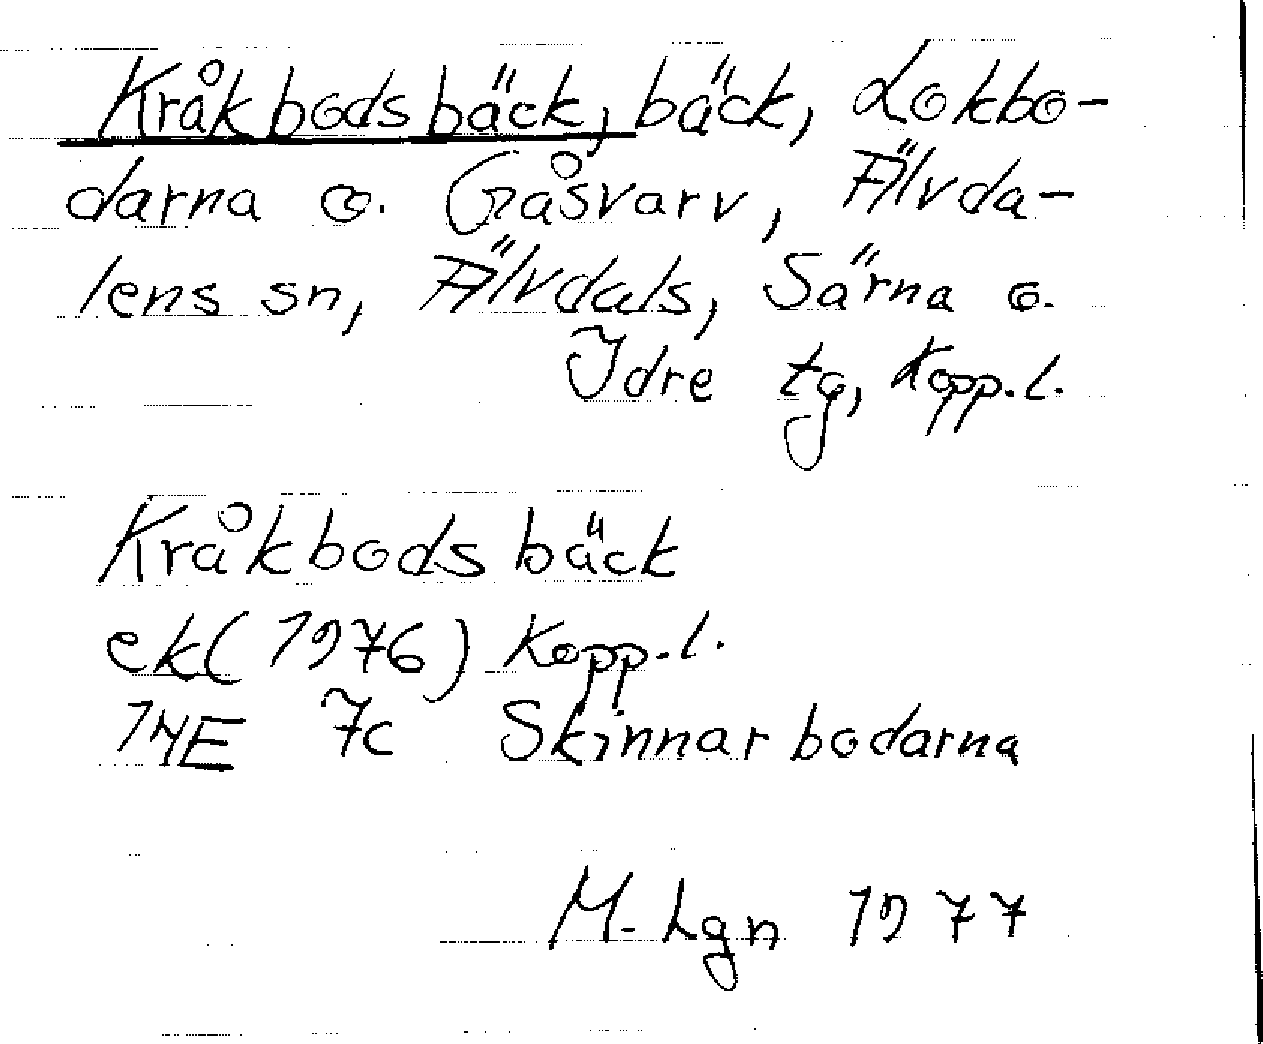 Kråkbodsbäck, bäck, Lokbo-
darna o. Gåsvarv, Älvda-
lens sn, Älvdals, Särna o.
Idre tg, Kopp.l.
Kråkbodsbäck
ek(1976) Kopp.l.
14E 7c Skinnarbodarna
M-Lgn 1977